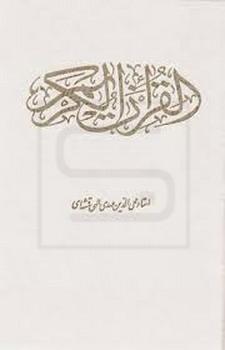 القرآن الكريم
استاد محی‌الدین مهدی الهی قمشه‌ای